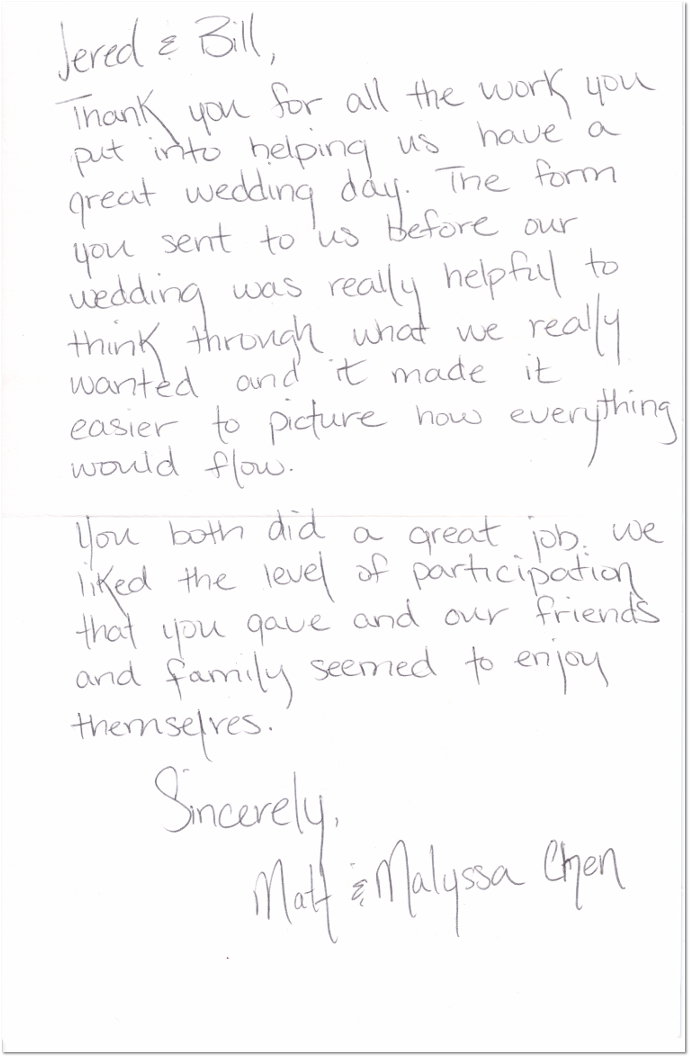 Jered & Bill,
Thank you for all the work you
put into helping us have a
great wedding day. The form
you sent to us before our
wedding was really helpful to
think through what we really
wanted and it made it
easier to picture how everything
would flow.
You both did a great job. We
liked the level of participation
that you gave and our friends
and family seemed to enjoy
themselves.
Sincerely,
Matt & Malyssa Chen